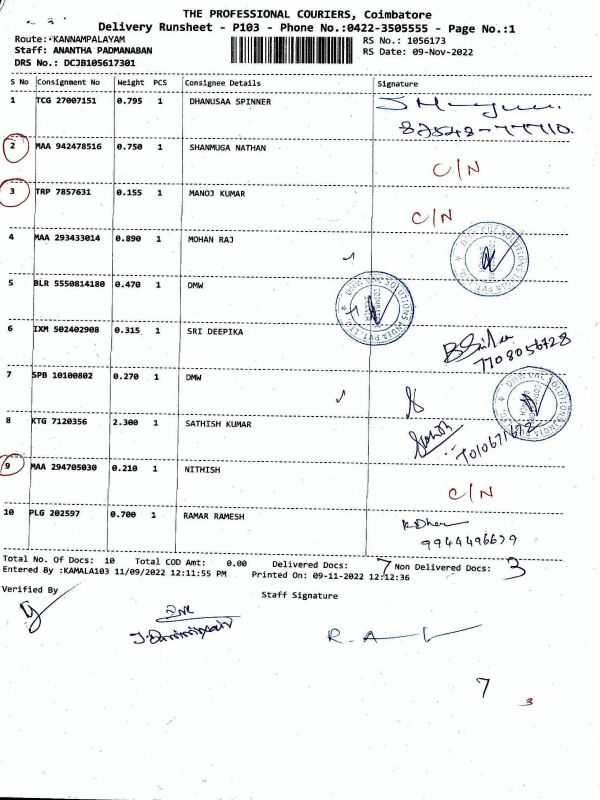 THE PROFESSIONAL COURIERS, Coimbatore
Delivery Runsheet - P103 - Phone No.:0422-3505555 - Page No.:1
Route: KANNAMPALAYAM
RS No.: 1056173
Staff: ANANTHA PADMANABAN
RS Date: 09-Nov-2022
DRS No.: DCJB105617301
S No Consignment No Weight PCS Consignee Details Signature
1 TCG 27007151 0.795 1 DHANUSAA SPINNER
82548-77710.
2 MAA 942478516 0.750 1 SHANMUGA NATHAN
C/N
3 TRP 7857631 0.155 1 MANOJ KUMAR
C/N
4 MAA 293433014 0.890 1 MOHAN RAJ
5 BLR 5550814180 0.470 1 DMW
6 IXM 502402908 0.315 1 SRI DEEPIKA
7708056728
7 SPB 10100802 0.270 1 DMW
8 KTG 7120356 2.300 1 SATHISH KUMAR
9 MAA 294705030 0.210 1 NITHISH
C/N
10 PLG 202597 0.700 1 RAMAR RAMESH
9944496679
Total No. Of Docs: 10 Total COD Amt: 0.00 Delivered Docs: 7 Non Delivered Docs: 3
Entered By :KAMALA103 11/09/2022 12:11:55 PM Printed On: 09-11-2022 12:12:36
Verified By
Staff Signature
7
3